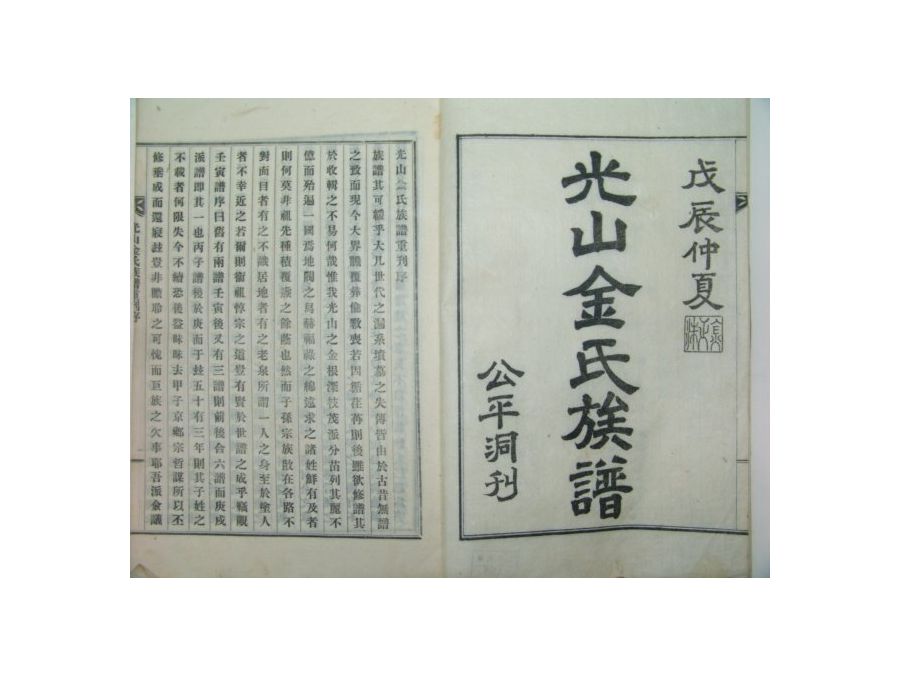 戊辰仲夏
光山金氏族譜
公平洞刊
光山金氏族譜重刊序
族譜其可緩乎大凡世代之漏系墳墓之失傳皆由於古昔無譜
之致而現今大界飜覆彝倫斁喪若因循荏苒則後雖欲修譜其
於收輯之不易何哉惟我光山之金根深枝茂派分苗列其麗不
億而殆遍一國焉地閥之爲赫福祿之綿遠求之諸姓鮮有及者
則何莫非祖先種積覆燾之餘蔭也然而子孫宗族散在各路不
對面目者有之不識居地者有之老泉所謂一人之身至於塗人
者不幸近之若爾則衛祖惇宗之道豈有賢於世譜之成乎竊覵
壬寅譜序曰舊有兩譜壬寅後又有三譜則前後合六譜而庚戌
派譜即其一也丙子譜後於庚而于玆五十有三年則其子姓之
不載者何限失今不續恐後益昧昧去甲子京鄉宗哲謀所以丕
修垂成而還寢玆豈非瞻聆之可愧而巨族之欠事耶吾派僉議
光山金氏族譜重刊序